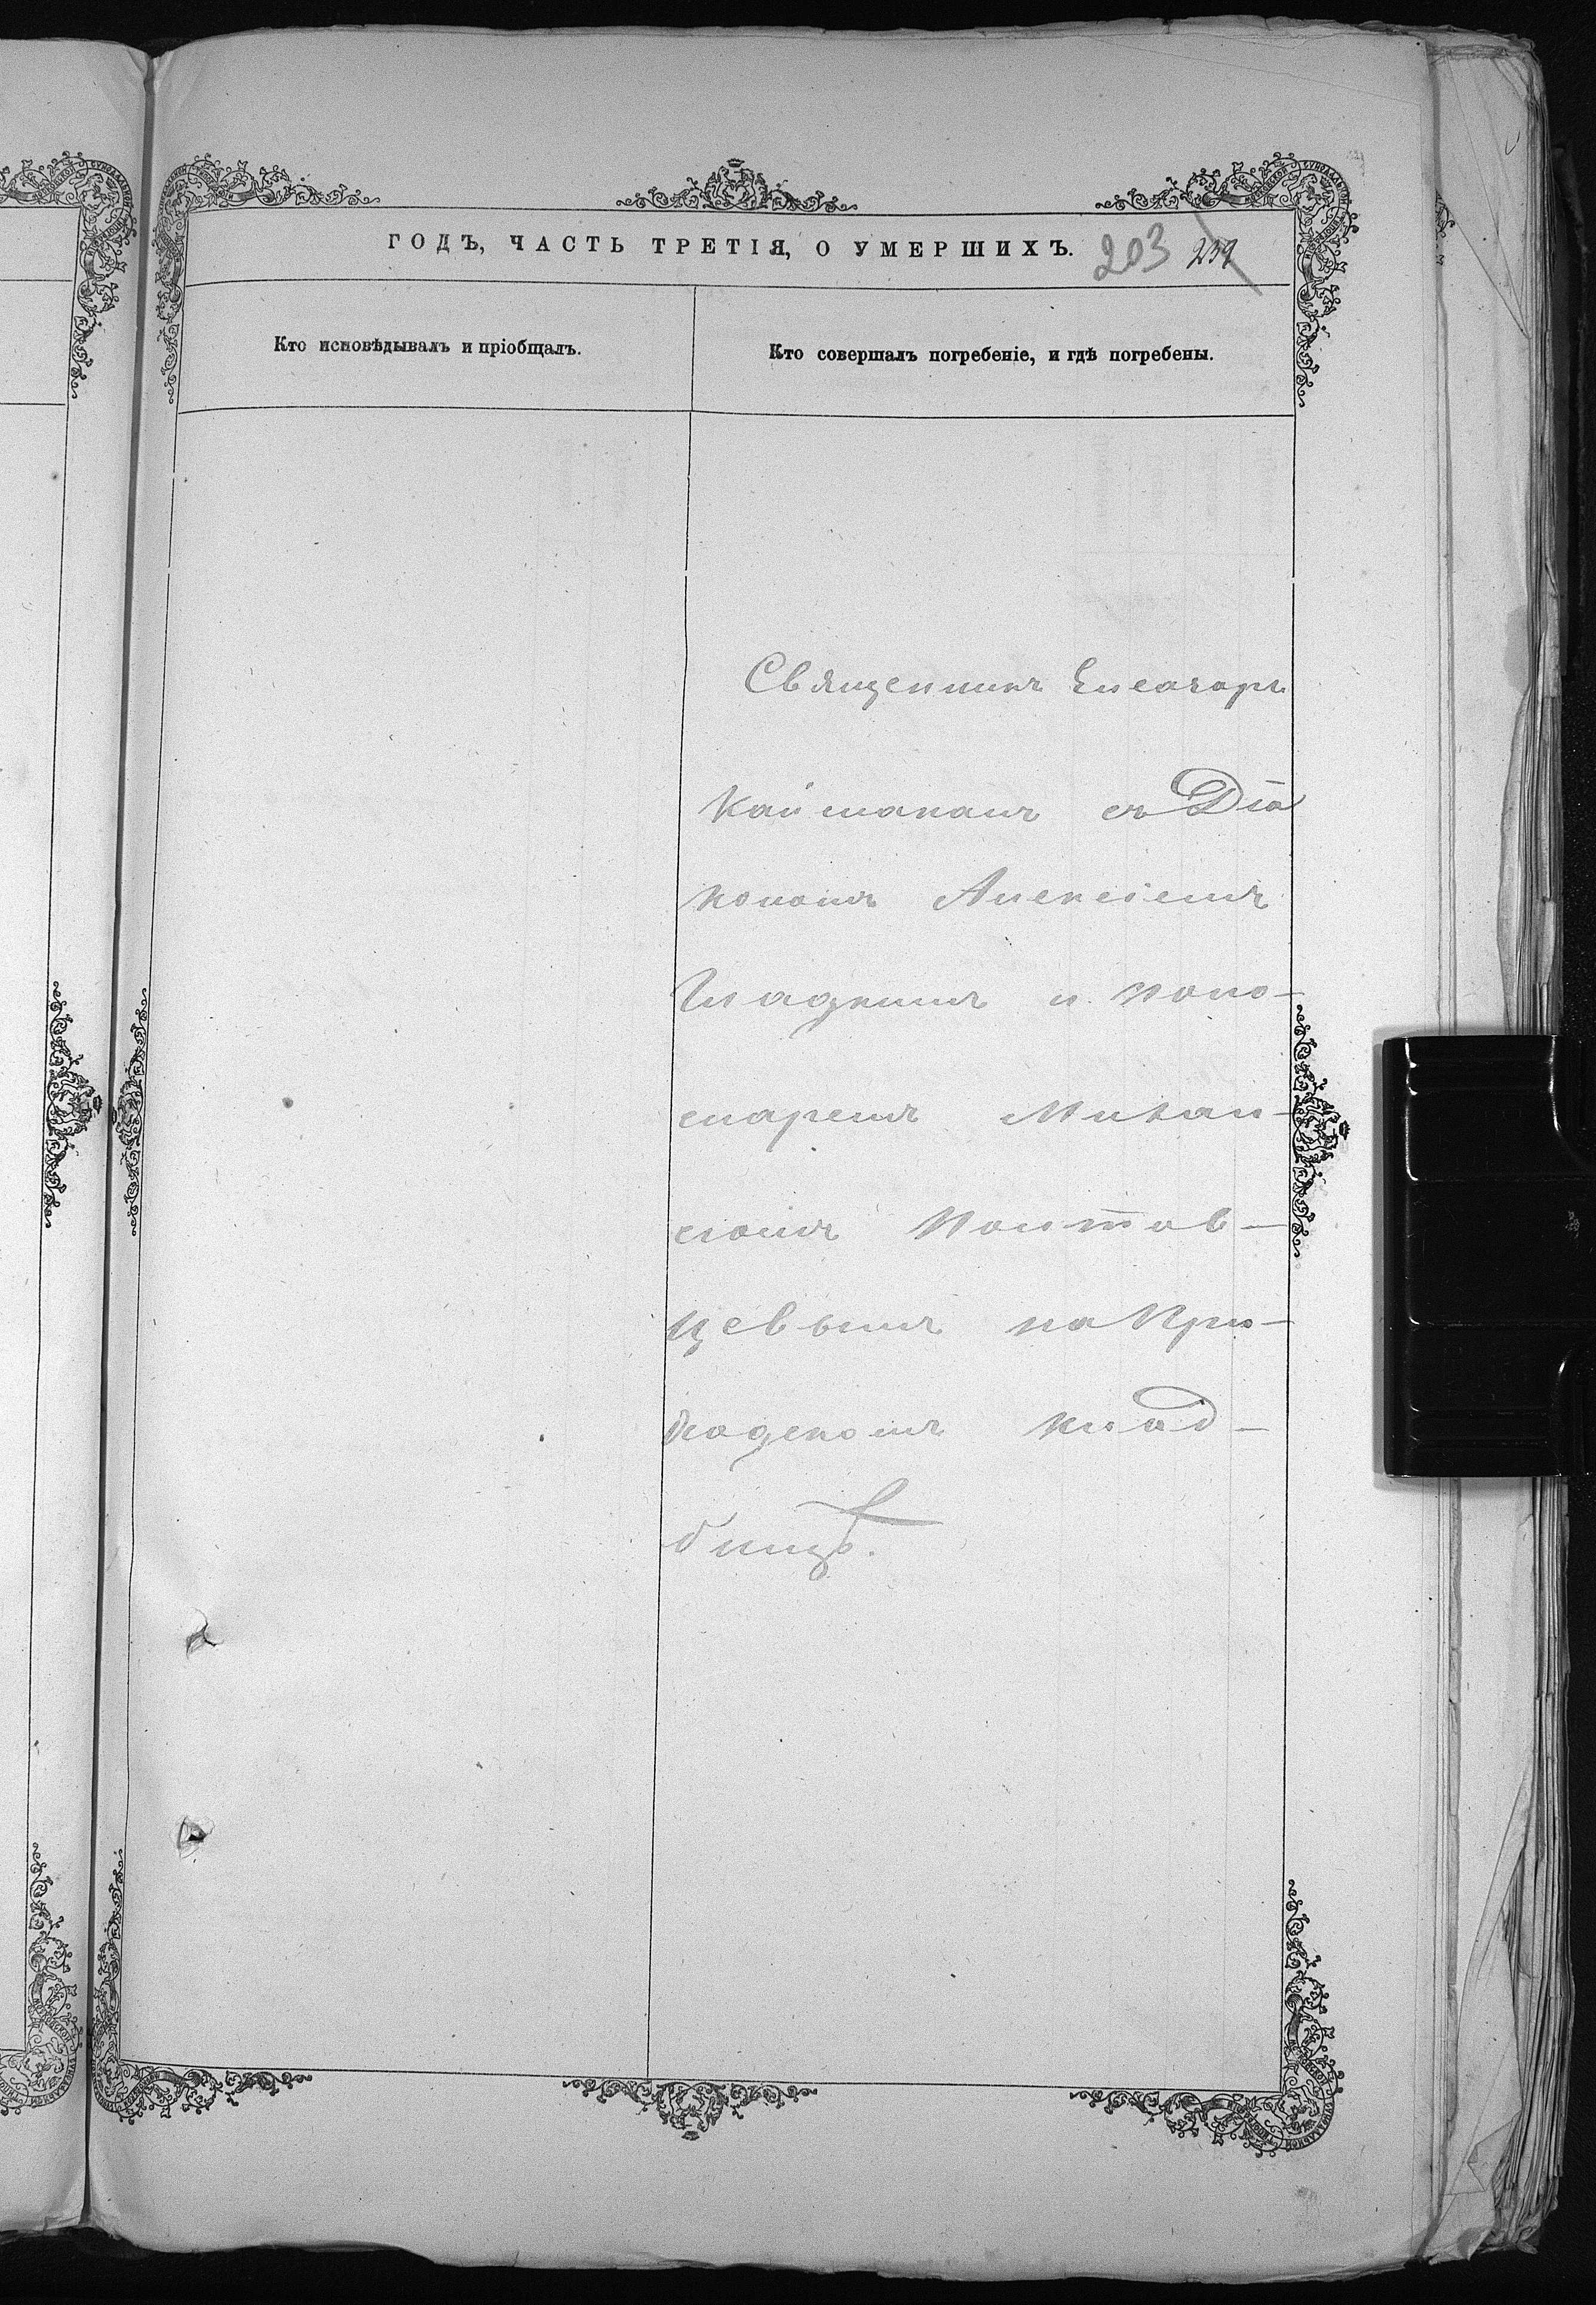 ГОДЪ, ЧАСТЬ ТРЕТІЯ, О УМЕРШИХЪ. 203 239
Кто исповѣдывалъ и пріобщалъ.
Кто совершалъ погребеніе, и гдѣ погребены.
Священникъ Елеазаръ
Кайманакъ съ Діа
кономъ Алексіемъ
Гладкимъ и поно-
маремъ Михаи-
ломъ Полтав-
цевымъ на При-
ходскомъ клад-
бищѣ.